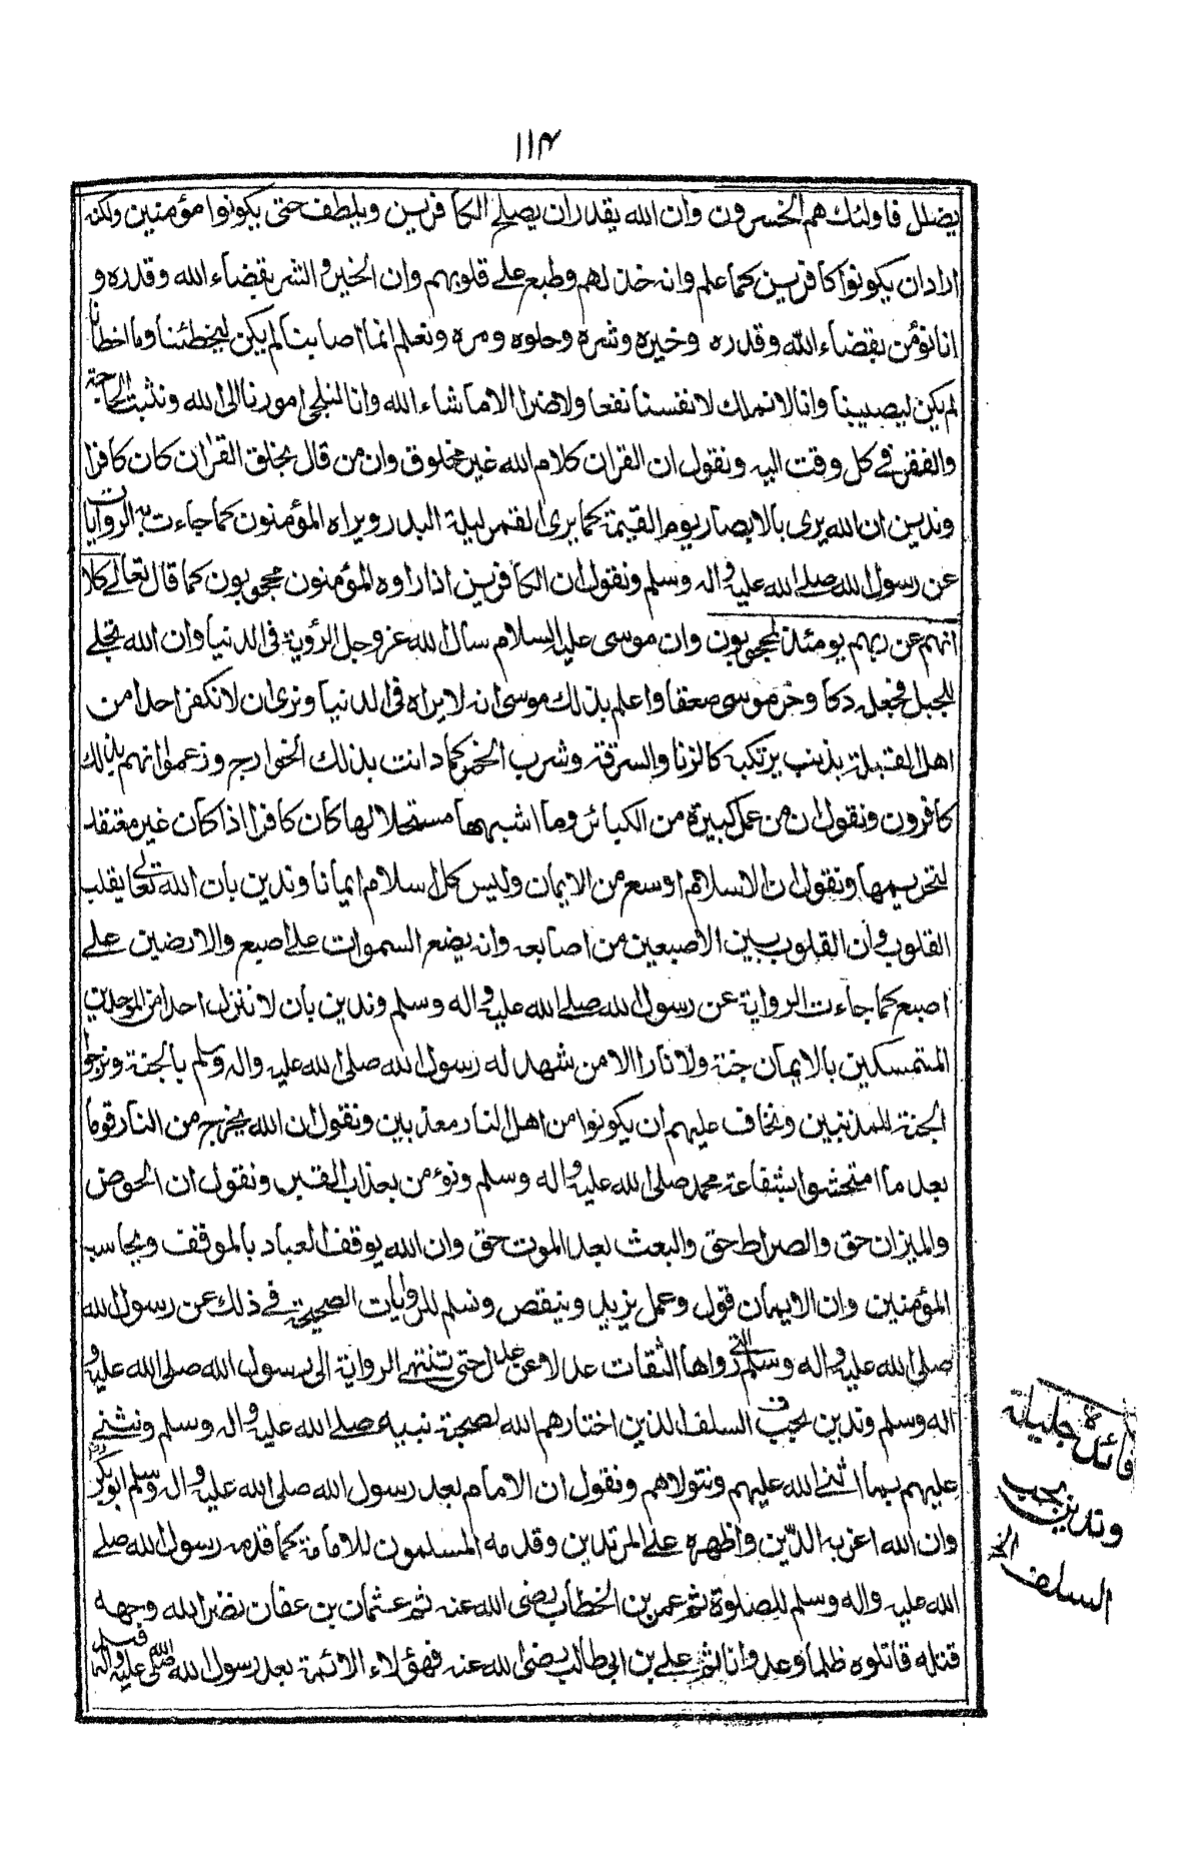 ١١٣
يضلل فاولئك هم الخسرون وان الله يقدر ان يصلح الكافرين ويلطف حتى يكونوا مؤمنين ولكنه
اراد ان يكونوا كافرين كما علم وانه خذلهم وطبع علے قلوبهم وان الخير والشر بقضاء الله وقدره و
انا نؤمن بقضاء الله وقدره وخيره وشره وحلوه ومره ونعلم انما اصابنا لم يكن ليخطئنا وما اخطأنا
لم يكن ليصيبنا وانا لا نملك لانفسنا نفعا ولا ضرا الا ما شاء الله وانا لنلجى امورنا الى الله ونثبت الحاجة
والفقر فے كل وقت اليه ونقول ان القران كلام الله غير مخلوق وان من قال بخلق القران كان كافرا
وندين ان الله يرى بالابصار يوم القيمة كما يرى القمر ليلة البدر ويراه المؤمنون كما جاءت به الروايات
عن رسول الله صلے الله عليه واله وسلم ونقول ان الكافرين اذا راوه المؤمنون محجوبون كما قال تعالے كلا
انهم عن ربهم يومئذ لمحجوبون وان موسى عليه السلام سال الله عز وجل الرؤية فى الدنيا وان الله تجلے
للجبل فجعله دكا وخر موسى صعقا واعلم بذلك موسى انه لا يراه فى الدنيا ونرى ان لا نكفر احدا من
اهل القبلة بذنب يرتكبه كالزنا والسرقة وشرب الخمر كما دانت بذلك الخوارج وزعموا انهم بذلك
كافرون ونقول ان من عمل كبيرة من الكبائر وما اشبهها مستحلا لها كان كافرا اذا كان غير معتقد
لتحريمها ونقول ان الاسلام اوسع من الايمان وليس كل اسلام ايمانا وندين بان الله تعالى يقلب
القلوب وان القلوب بين الاصبعين من اصابعه وانه يضع السموات علے اصبع والارضين علے
اصبع كما جاءت الرواية عن رسول الله صلے الله عليه واله وسلم وندين بان لا ننزل احدا من الموحدين
المتمسكين بالايمان جنة ولا نارا الا من شهد له رسول الله صلى الله عليه واله وسلم بالجنة ونرجوا
الجنة للمذنبين ونخاف عليهم ان يكونوا من اهل النار معذبين ونقول ان الله يخرج من النار قوما
بعد ما امتحشوا بشفاعة محمد صلى الله عليه واله وسلم ونؤمن بعذاب القبر ونقول ان الحوض
والميزان حق والصراط حق والبعث بعد الموت حق وان الله يوقف العباد بالموقف ويحاسب
المؤمنين وان الايمان قول وعمل يزيد وينقص ونسلم للروايات الصحيحة فے ذلك عن رسول الله
صلى الله عليه واله وسلم التى رواها الثقات عدلا عن عدل حتى تنتهے الرواية الى رسول الله صلى الله عليه و
اله وسلم وندين بحب السلف الذين اختارهم الله لصحبة نبيه صلے الله عليه واله وسلم ونثنے
عليهم بما اثنے الله عليهم ونتولاهم ونقول ان الامام بعد رسول الله صلى الله عليه واله وسلم ابو بكر
وان الله اعز به الدين واظهره علے المرتدين وقدمه المسلمون للامامة كما قدمه رسول الله صلے
الله عليه واله وسلم للصلوة ثم عمر بن الخطاب رضى الله عنه ثم عثمان بن عفان نضر الله وجهه
قتله قاتلوه ظلما وعدوانا ثم علے بن ابى طالب رضى الله عنه فهؤلاء الائمة بعد رسول الله صلى الله عليه واله
فائدة جليلة
وندين بحب
السلف الخ